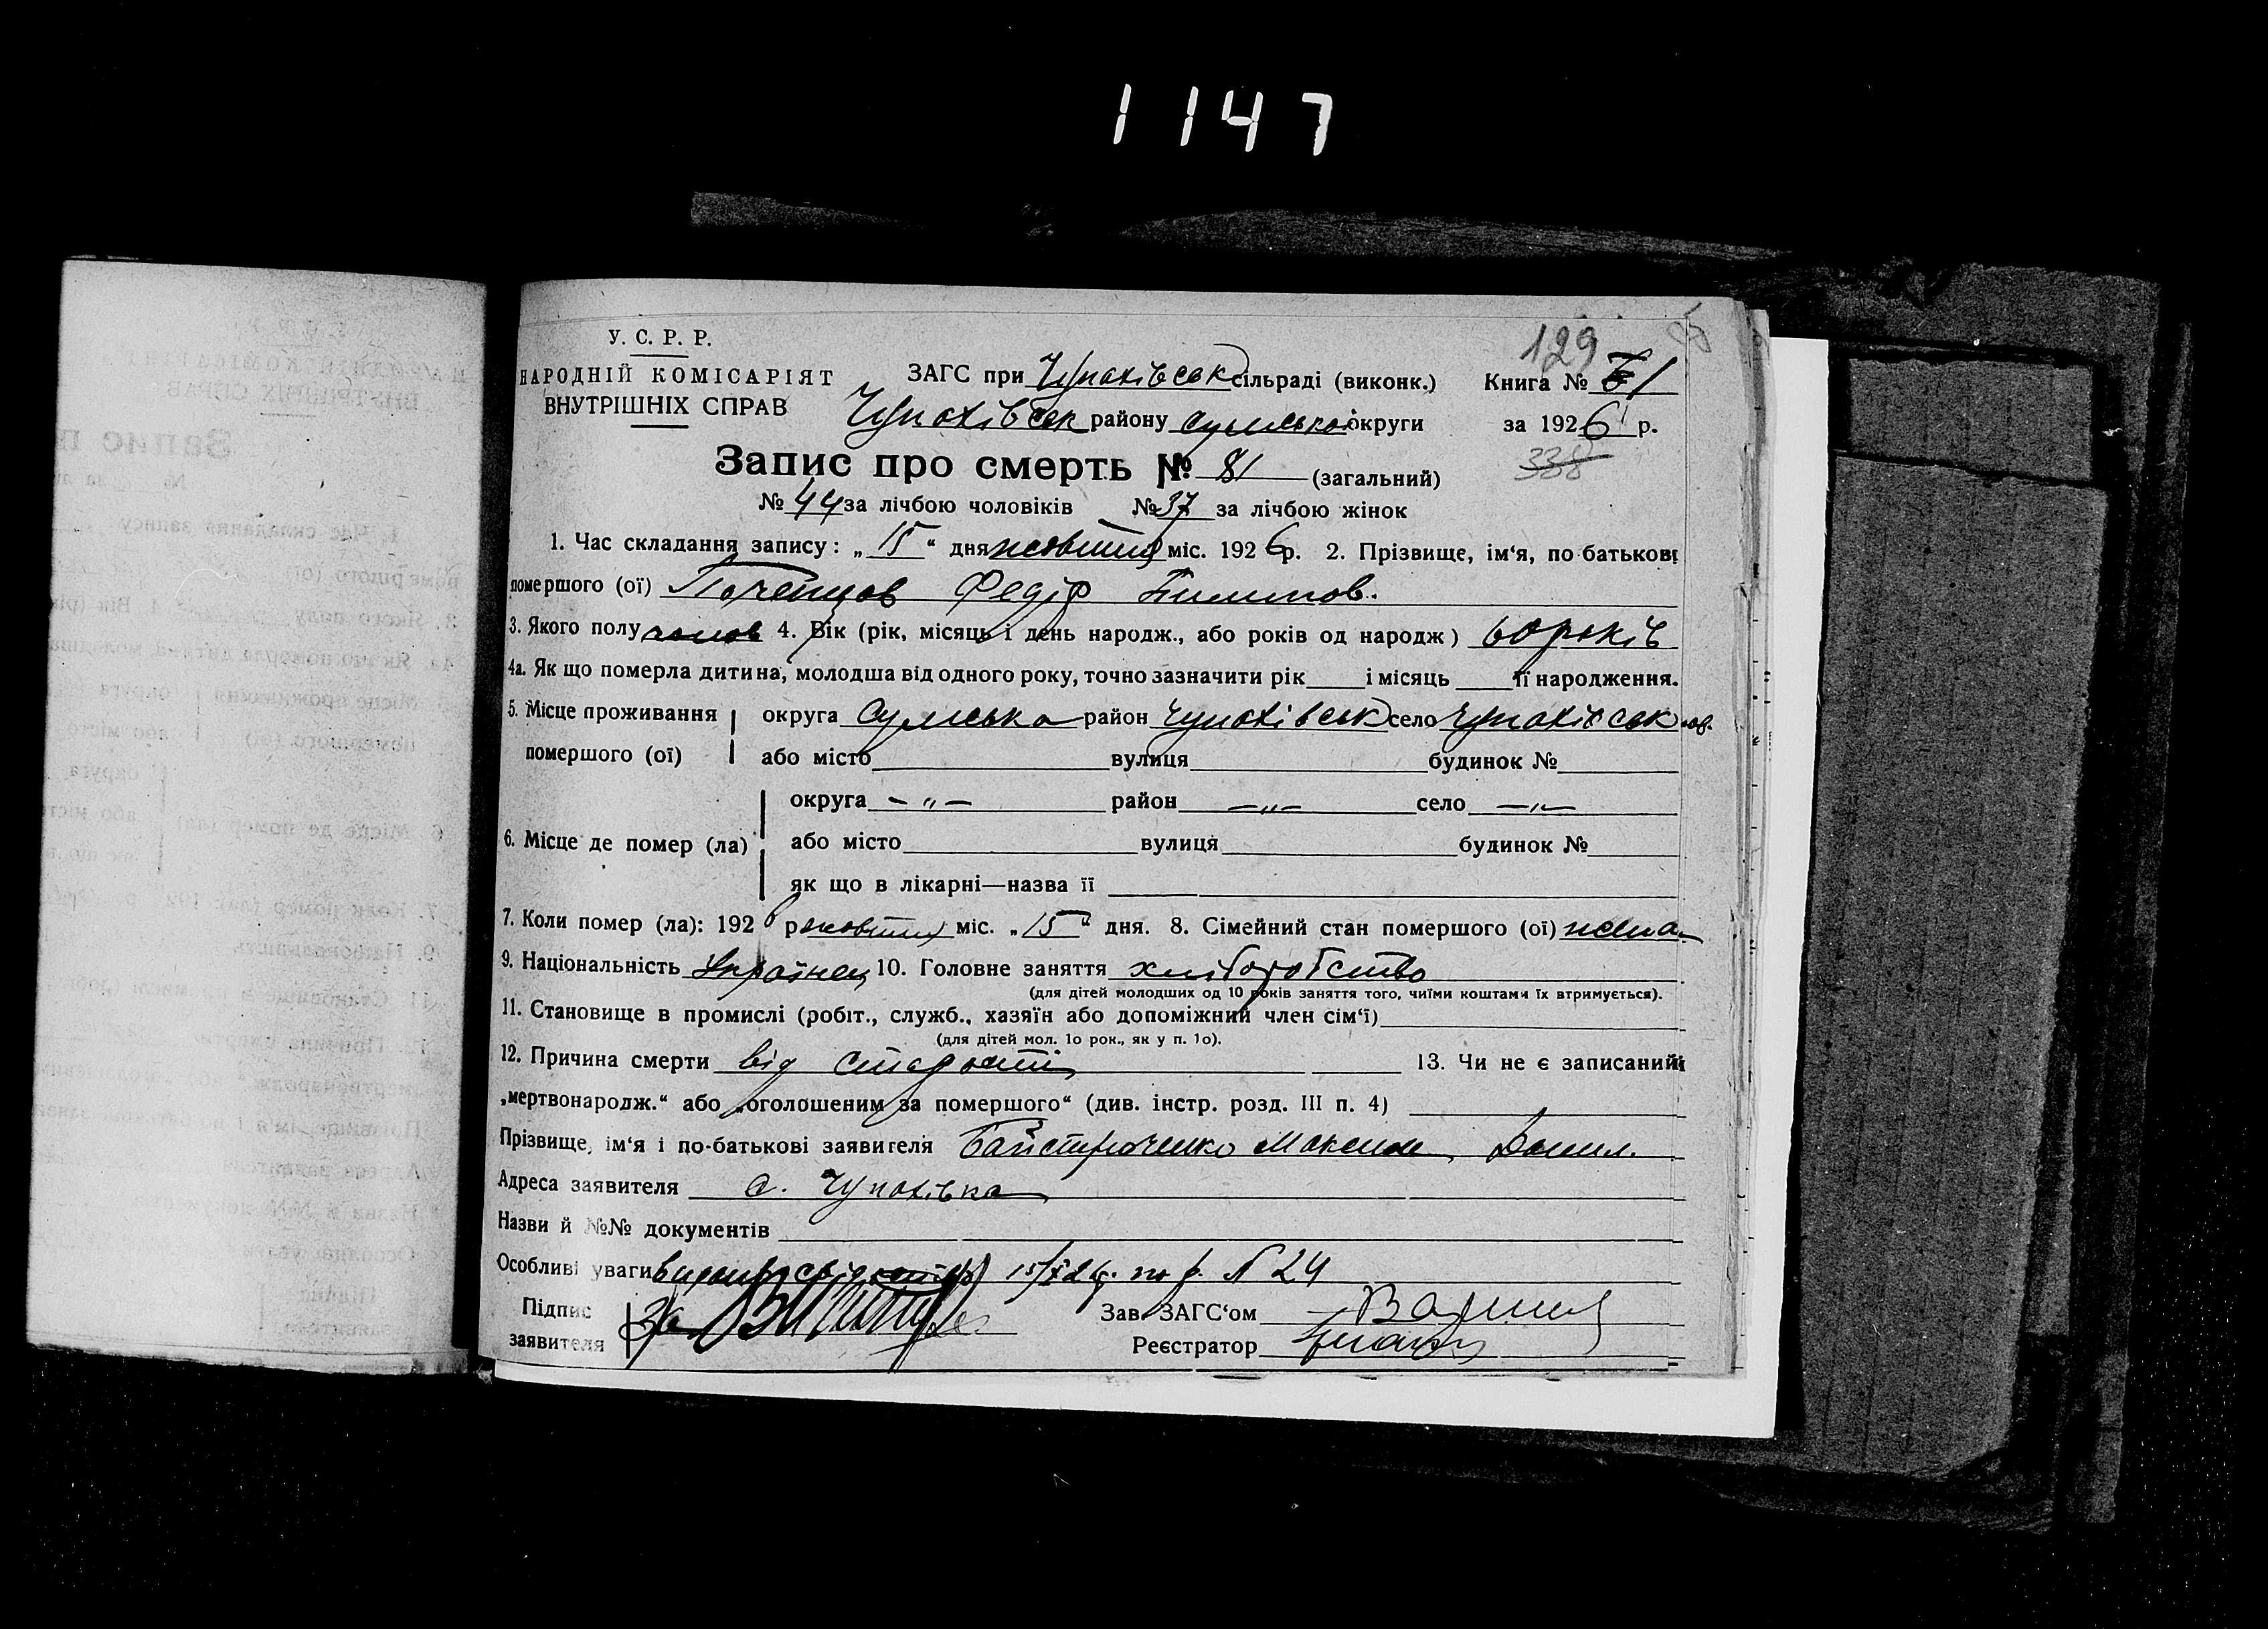 1147
129
У. С. Р. Р.
НАРОДНІЙ КОМІСАРІЯТ
ВНУТРІШНІХ СПРАВ
ЗАГС при Чупахівськ сільраді (виконк.) Книга №
Чупахівськ району Сумської округи за 1926 р.
338
Запис про смерть № 81 (загальний)
№ 44 за лічбою чоловіків № 37 за лічбою жінок
1. Час складання запису: „15“ дня жовтня міс. 1926 р. 2. Прізвище, ім‘я, по-батькові
помершого (ої) Почепцов Федір Пилипов.
3. Якого полу чолов 4. Вік (рік, місяць і день народж., або років од народж) 60 років
4а. Як що померла дитина, молодша від одного року, точно зазначити рік і місяць її народження.
5. Місце проживання помершого (ої) округа Сумська район Чупахівськ село Чупахівськ
або місто вулиця будинок №
6. Місце де помер (ла) округа —„— район —„— село —„—
або місто вулиця будинок №
як що в лікарні—назва її
7. Коли помер (ла): 1926 р жовтня міс. „15“ дня. 8. Сімейний стан помершого (ої)
9. Національність Українец 10. Головне заняття хліборобство
(для дітей молодших од 10 років заняття того, чиїми коштами їх втримується).
11. Становище в промислі (робіт., служб., хазяїн або допоміжний член сім‘ї)
(для дітей мол. 1о рок., як у п. 1о).
12. Причина смерти від старости 13. Чи не є записаний
„мертвонародж.“ або „оголошеним за помершого“ (див. інстр. розд. III п. 4)
Прізвище, ім‘я і по-батькові заявителя Байстрюченко Максим
Адреса заявителя с. Чупахівка
Назви й №№ документів
Особливі уваги 15/X 26р. по р. N 24
Підпис заявителя За Зав. ЗАГС‘ом
Реєстратор